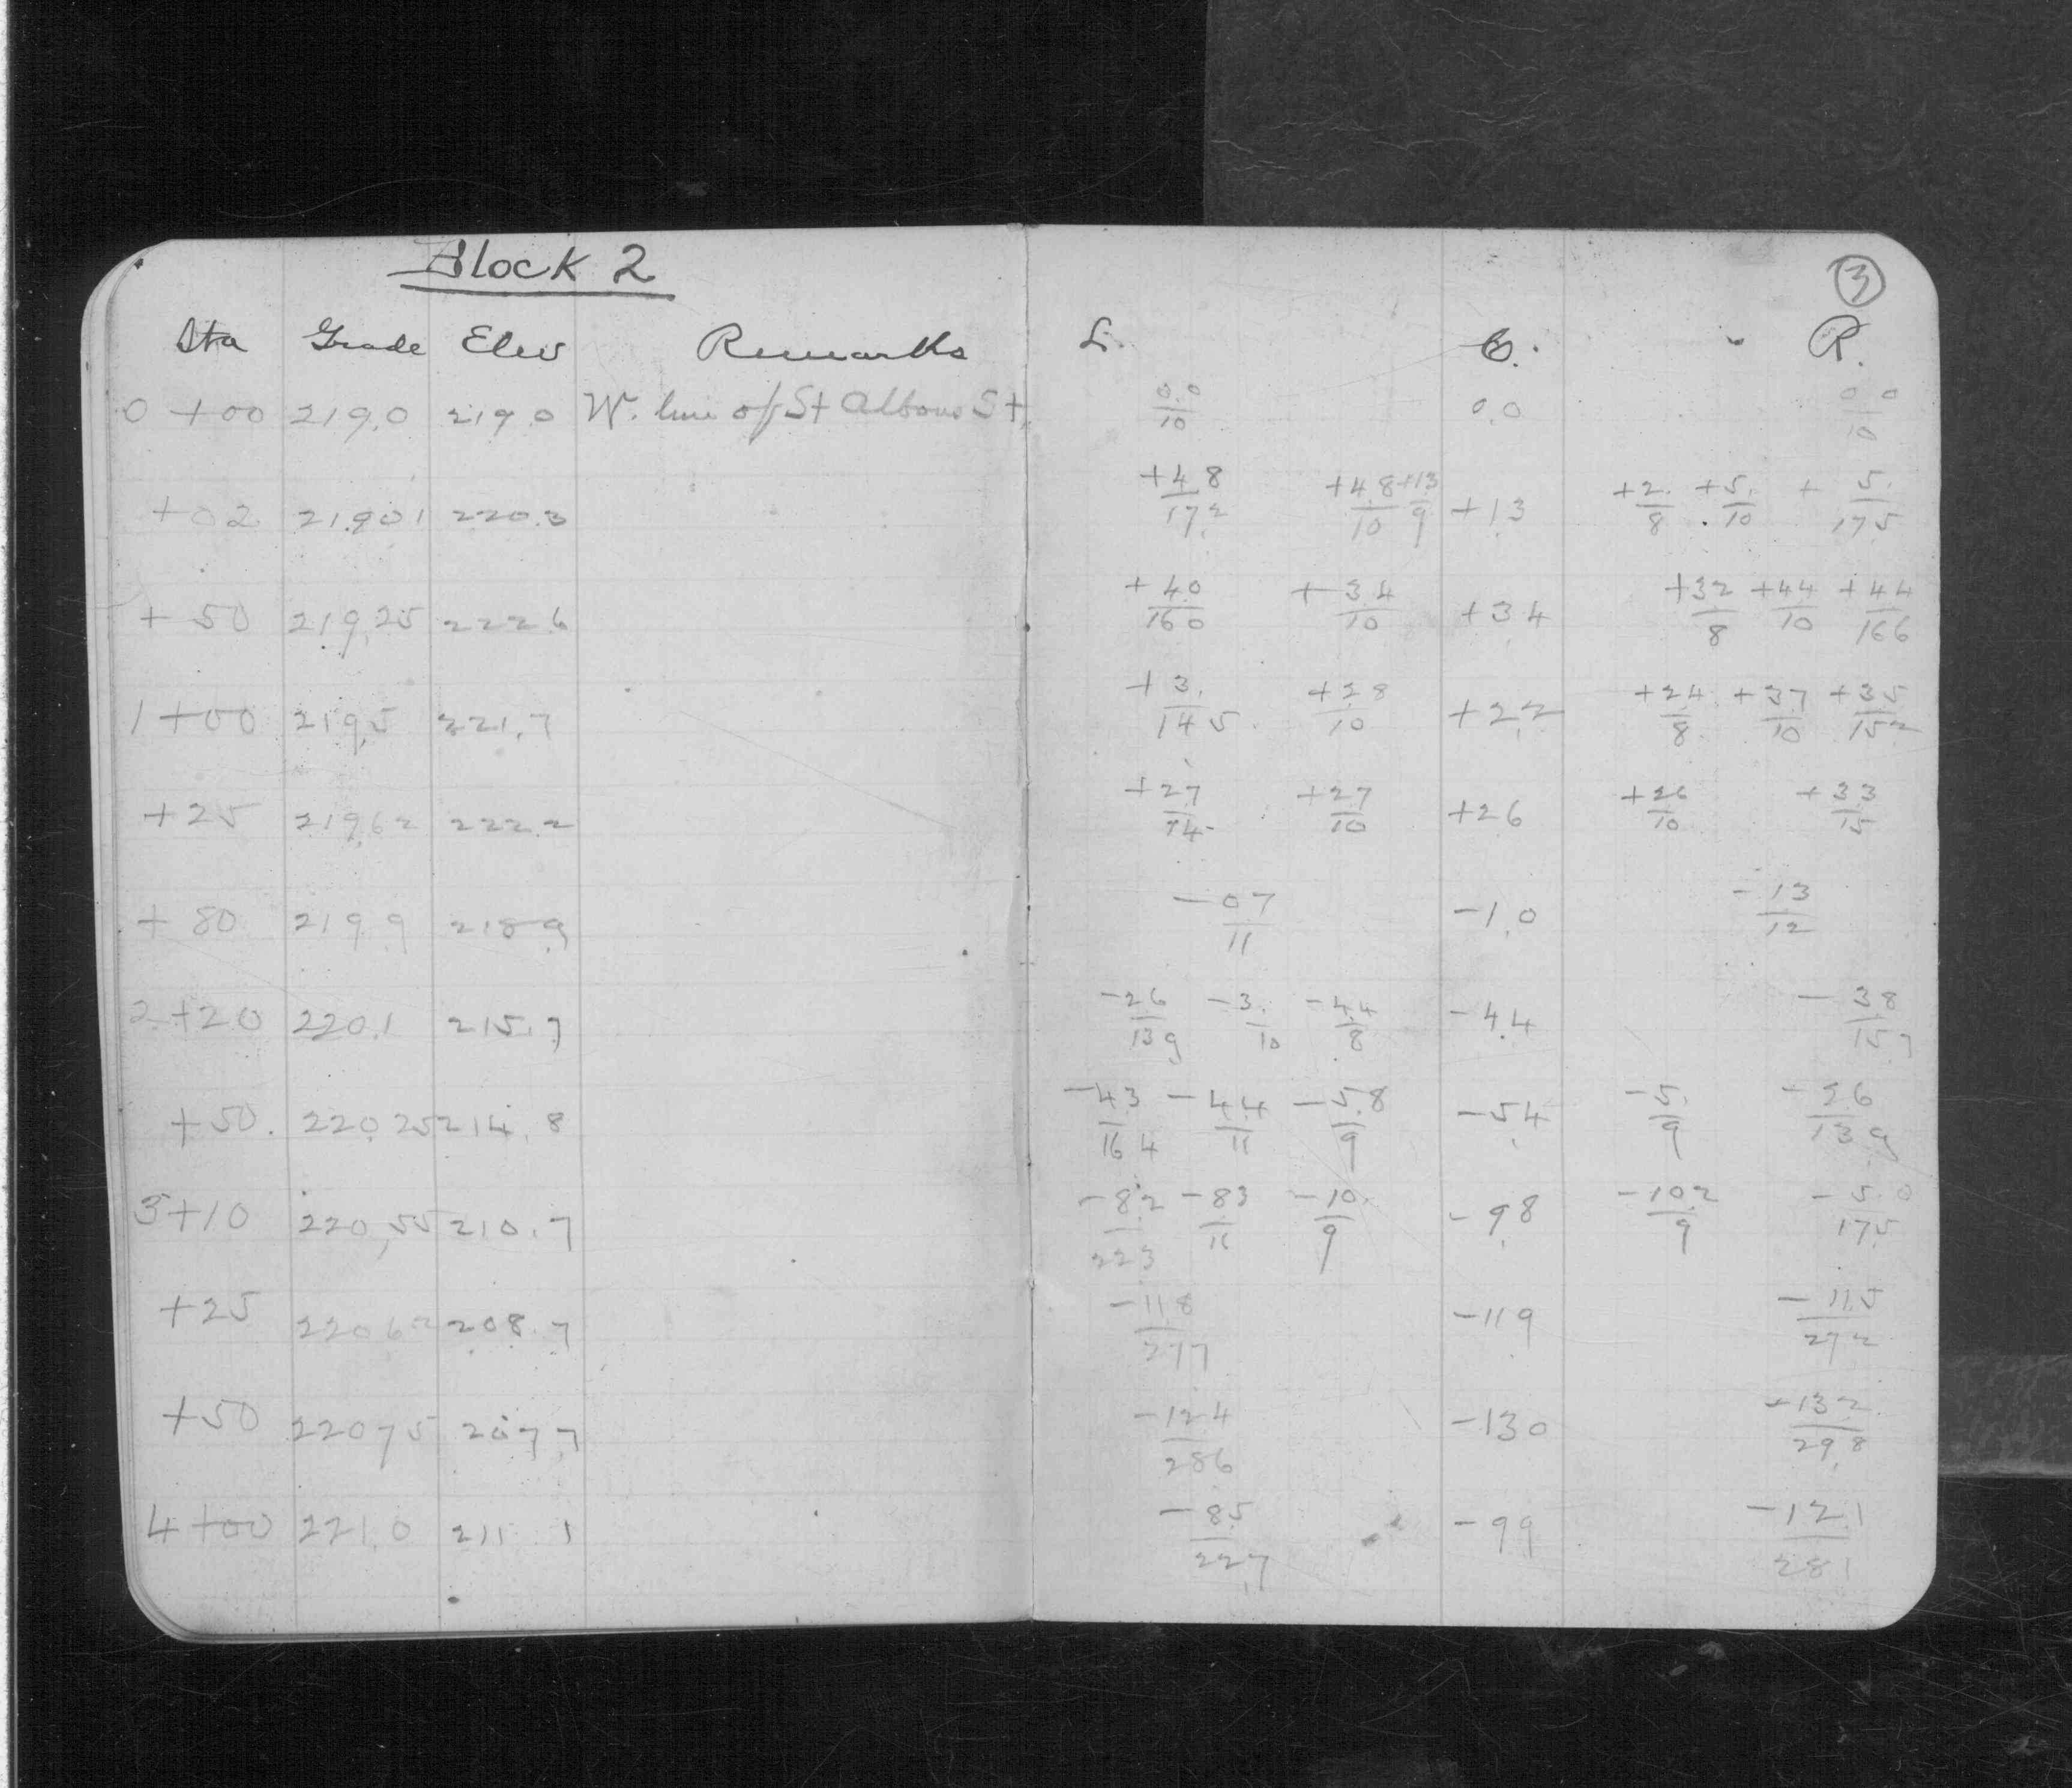 Block 2
③
Sta Grade Elev Remarks L. C. R.
0+00 219.0 219.0 W. line of St Albans St. 0.0/10 0.0 0.0/10
+02 219.01 220.3 +4.8/17.2 +4.8/10 +1.3/9 +1.3 +2./8 +5./10 +5./17.5
+50 219.25 222.6 +4.0/16.0 +3.4/10 +3.4 +3.2/8 +4.4/10 +4.4/16.6
1+00 219.5 221.7 +3./14.5 +2.8/10 +2.2 +2.4/8 +3.7/10 +3.5/15.2
+25 219.62 222.2 +2.7/14 +2.7/10 +2.6 +2.6/10 +3.3/15
+80 219.9 218.9 -0.7/11 -1.0 -1.3/12
2+20 220.1 215.7 -2.6/13.9 -3./10 -4.4/8 -4.4 -3.8/15.7
+50. 220.25 214.8 -4.3/16.4 -4.4/11 -5.8/9 -5.4 -5./9 -2.6/13.9
3+10 220.55 210.7 -8.2/22.3 -8.3/11 -10./9 -9.8 -10.2/9 -5.0/17.5
+25 220.62 208.7 -11.8/27.7 -11.9 -11.5/27.2
+50 220.75 207.7 -12.4/28.6 -13.0 -13.2/29.8
4+00 221.0 211.1 -8.5/22.7 -9.9 -12.1/28.1